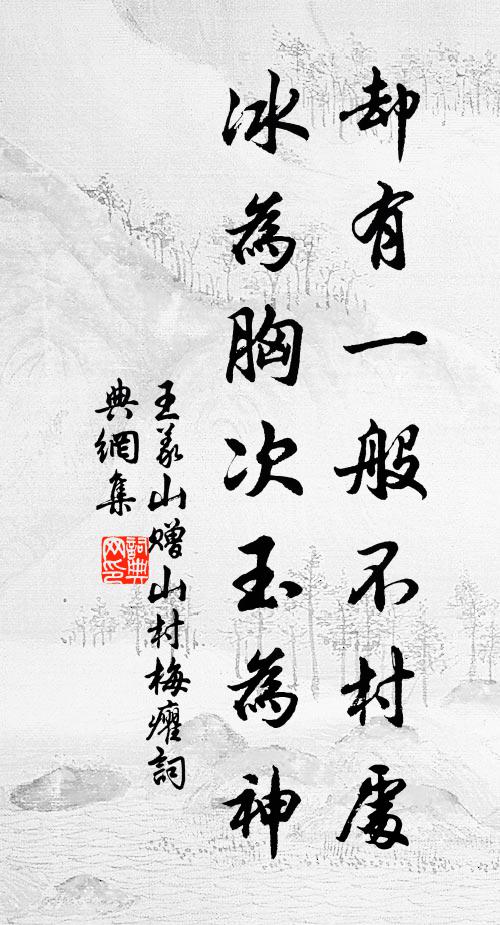 却有一般不村處
冰為胸次玉為神
王義山贈山村梅癯詞
典網集
詞典网印